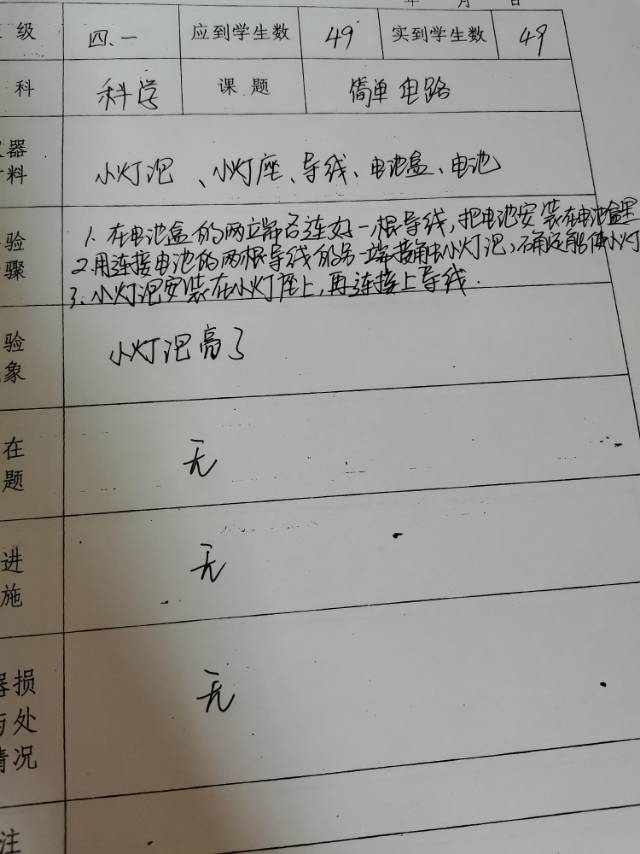 年 月 日
级 四.一 应到学生数 49 实到学生数 49
科 科学 课题 简单电路
器
料
小灯泡、小灯座、导线、电池盒、电池
验
骤
1. 在电池盒的两端各连好一根导线,把电池安装在电池盒里
2. 用连接电池的两根导线的另一端接触小灯泡,确定能使小灯
3. 小灯泡安装在小灯座上,再连接上导线.
验
象
小灯泡亮了
在
题
无
进
施
无
器损
与处
情况
无
注